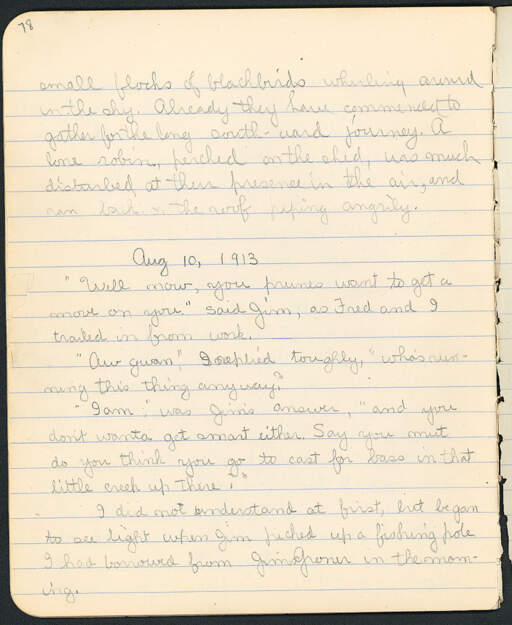 78
small flocks of blackbirds wheeling around
in the sky. Already they have commenced to
gather for the long south-ward journey. A
lone robin, perched on the shed, was much
disturbed at their presence in the air, and
ran back on the roof peping angrily.
Aug 10, 1913
"Well now, you prunes want to get a
move on you." said Jim, as Fred and I
trailed in from work.
"Aw gwan", I replied toughly, "who's run-
ning this thing anyway?"
"I am". was Jim's answer, "and you
don't wanta get smart either. Say you mut
do you think you go to cast for bass in that
little creek up there?"
I did not understand at first, but began
to see light when Jim picked up a fishing pole
I had borrowed from Jim in the morn-
ing.